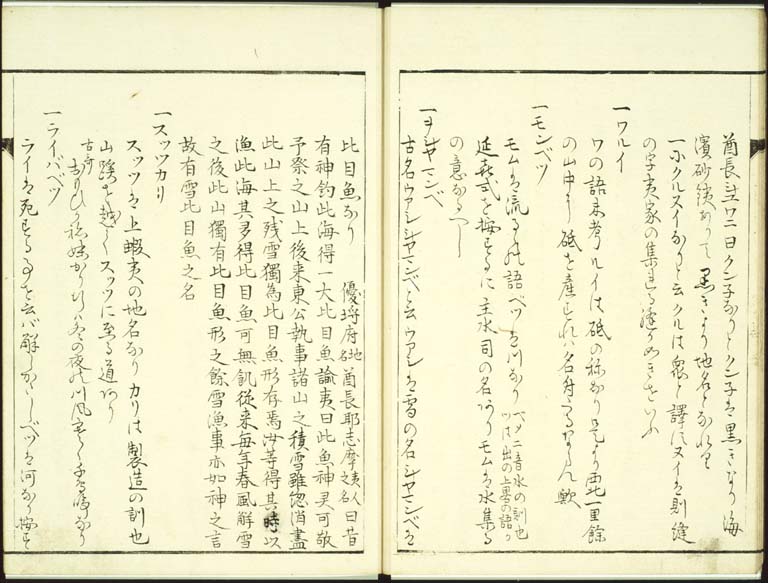 酋長シユワニ曰クン子なりとクン子は黒きなり海
濱砂鉄ありて黒きより地名となれり
一ホクルスイなりと云クルは衆と譯しスイは則縫
の字夷家の集れる
一ワルイ
ワの語未考ルイは砥の称なり是より西北一里餘
の山中より砥を産すれハ名付るならん歟
一モンベツ
モムは流るゝの語ベツは川なり
ベタニ音水の訓也
ツは出の上畧の語か
延喜式を按するに主水司の名ありモムは水集る
の意なるへし
一ヲシヤマンベ
古名ウアシシヤマンベと云ウアシは雪の名シヤマンベは
比目魚なり 優埒府地名 酋長耶志摩夷人之名 曰昔
有神釣此海得一大比目魚諭夷曰此魚神灵可敬
予祭之山上後来東公執事諸山之積雪雖悤消盡
此山上之残雪獨為此目魚形存焉汝等得其時以
漁此海其多得比目魚可無飢從来毎年春風解雪
之後此山獨有比目魚形之餘雪漁事亦如神之言
故有雪比目魚之名
一スッツカリ
スッツは上蝦夷の地名なりカリは製造の訓也
山蹊を越してスッツに至る道あり
古哥
冬の夜の川風寒く千鳥鳴なり
一ライバベツ
ライは死するのことを云バ解しかたしベツは河なり按す